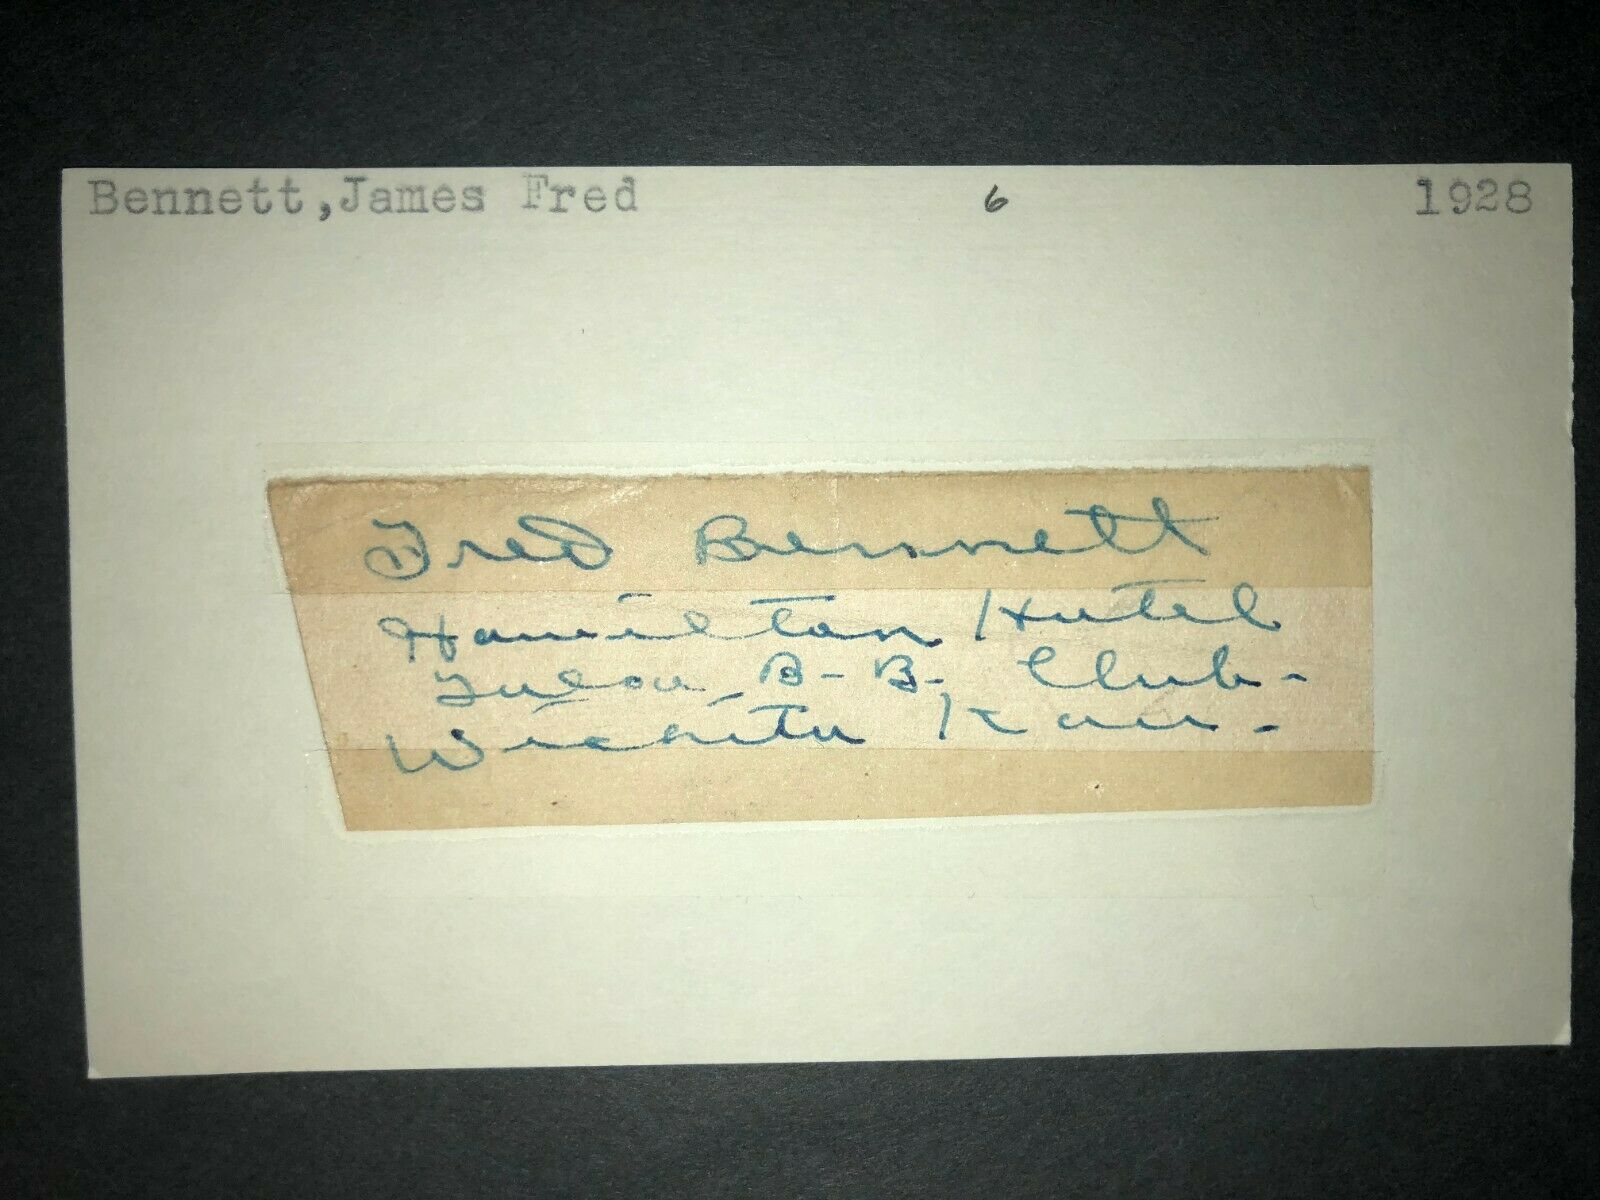 Bennett,James Fred 6 1928
Fred Bennett
Hamilton Hotel
Tulsa B-B. Club-
Wichita Kan.